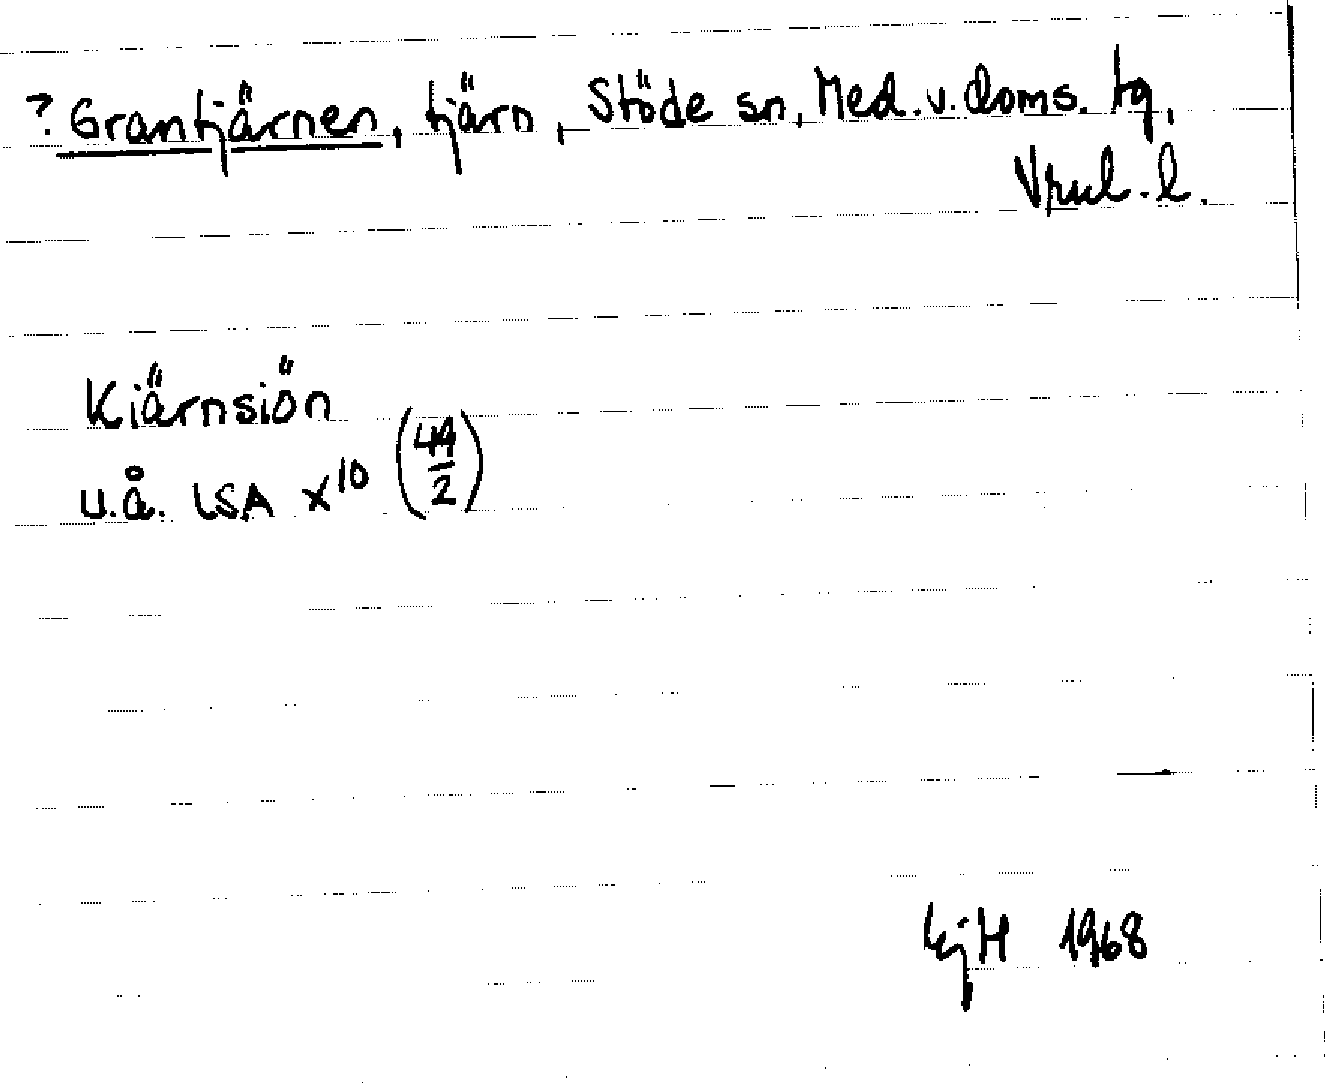 ? Grantjärnen, tjärn, Stöde sn, Med. v. doms. tg,
Vnrl. l.
Kiärnsiön
u.å. LSA X¹⁰ (44/2)
1968